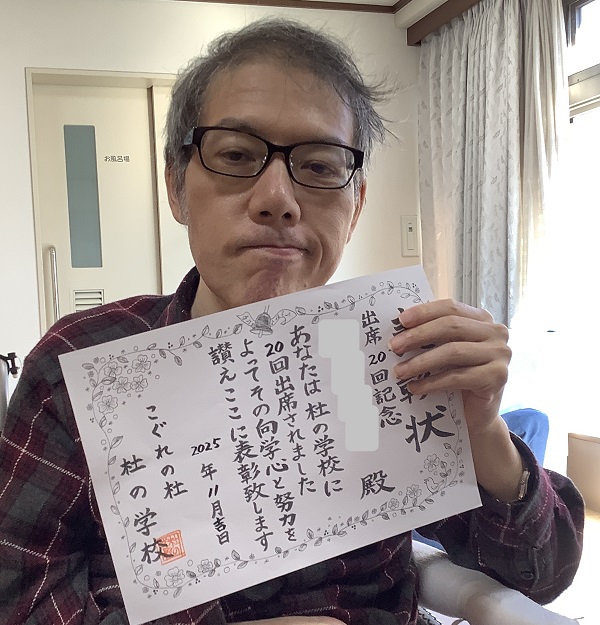 表彰状
出席20回記念
殿
あなたは杜の学校に
20回出席されました
よってその向学心と努力を
讃えここに表彰致します
2025年11月吉日
こぐれの杜
杜の学校
お風呂場